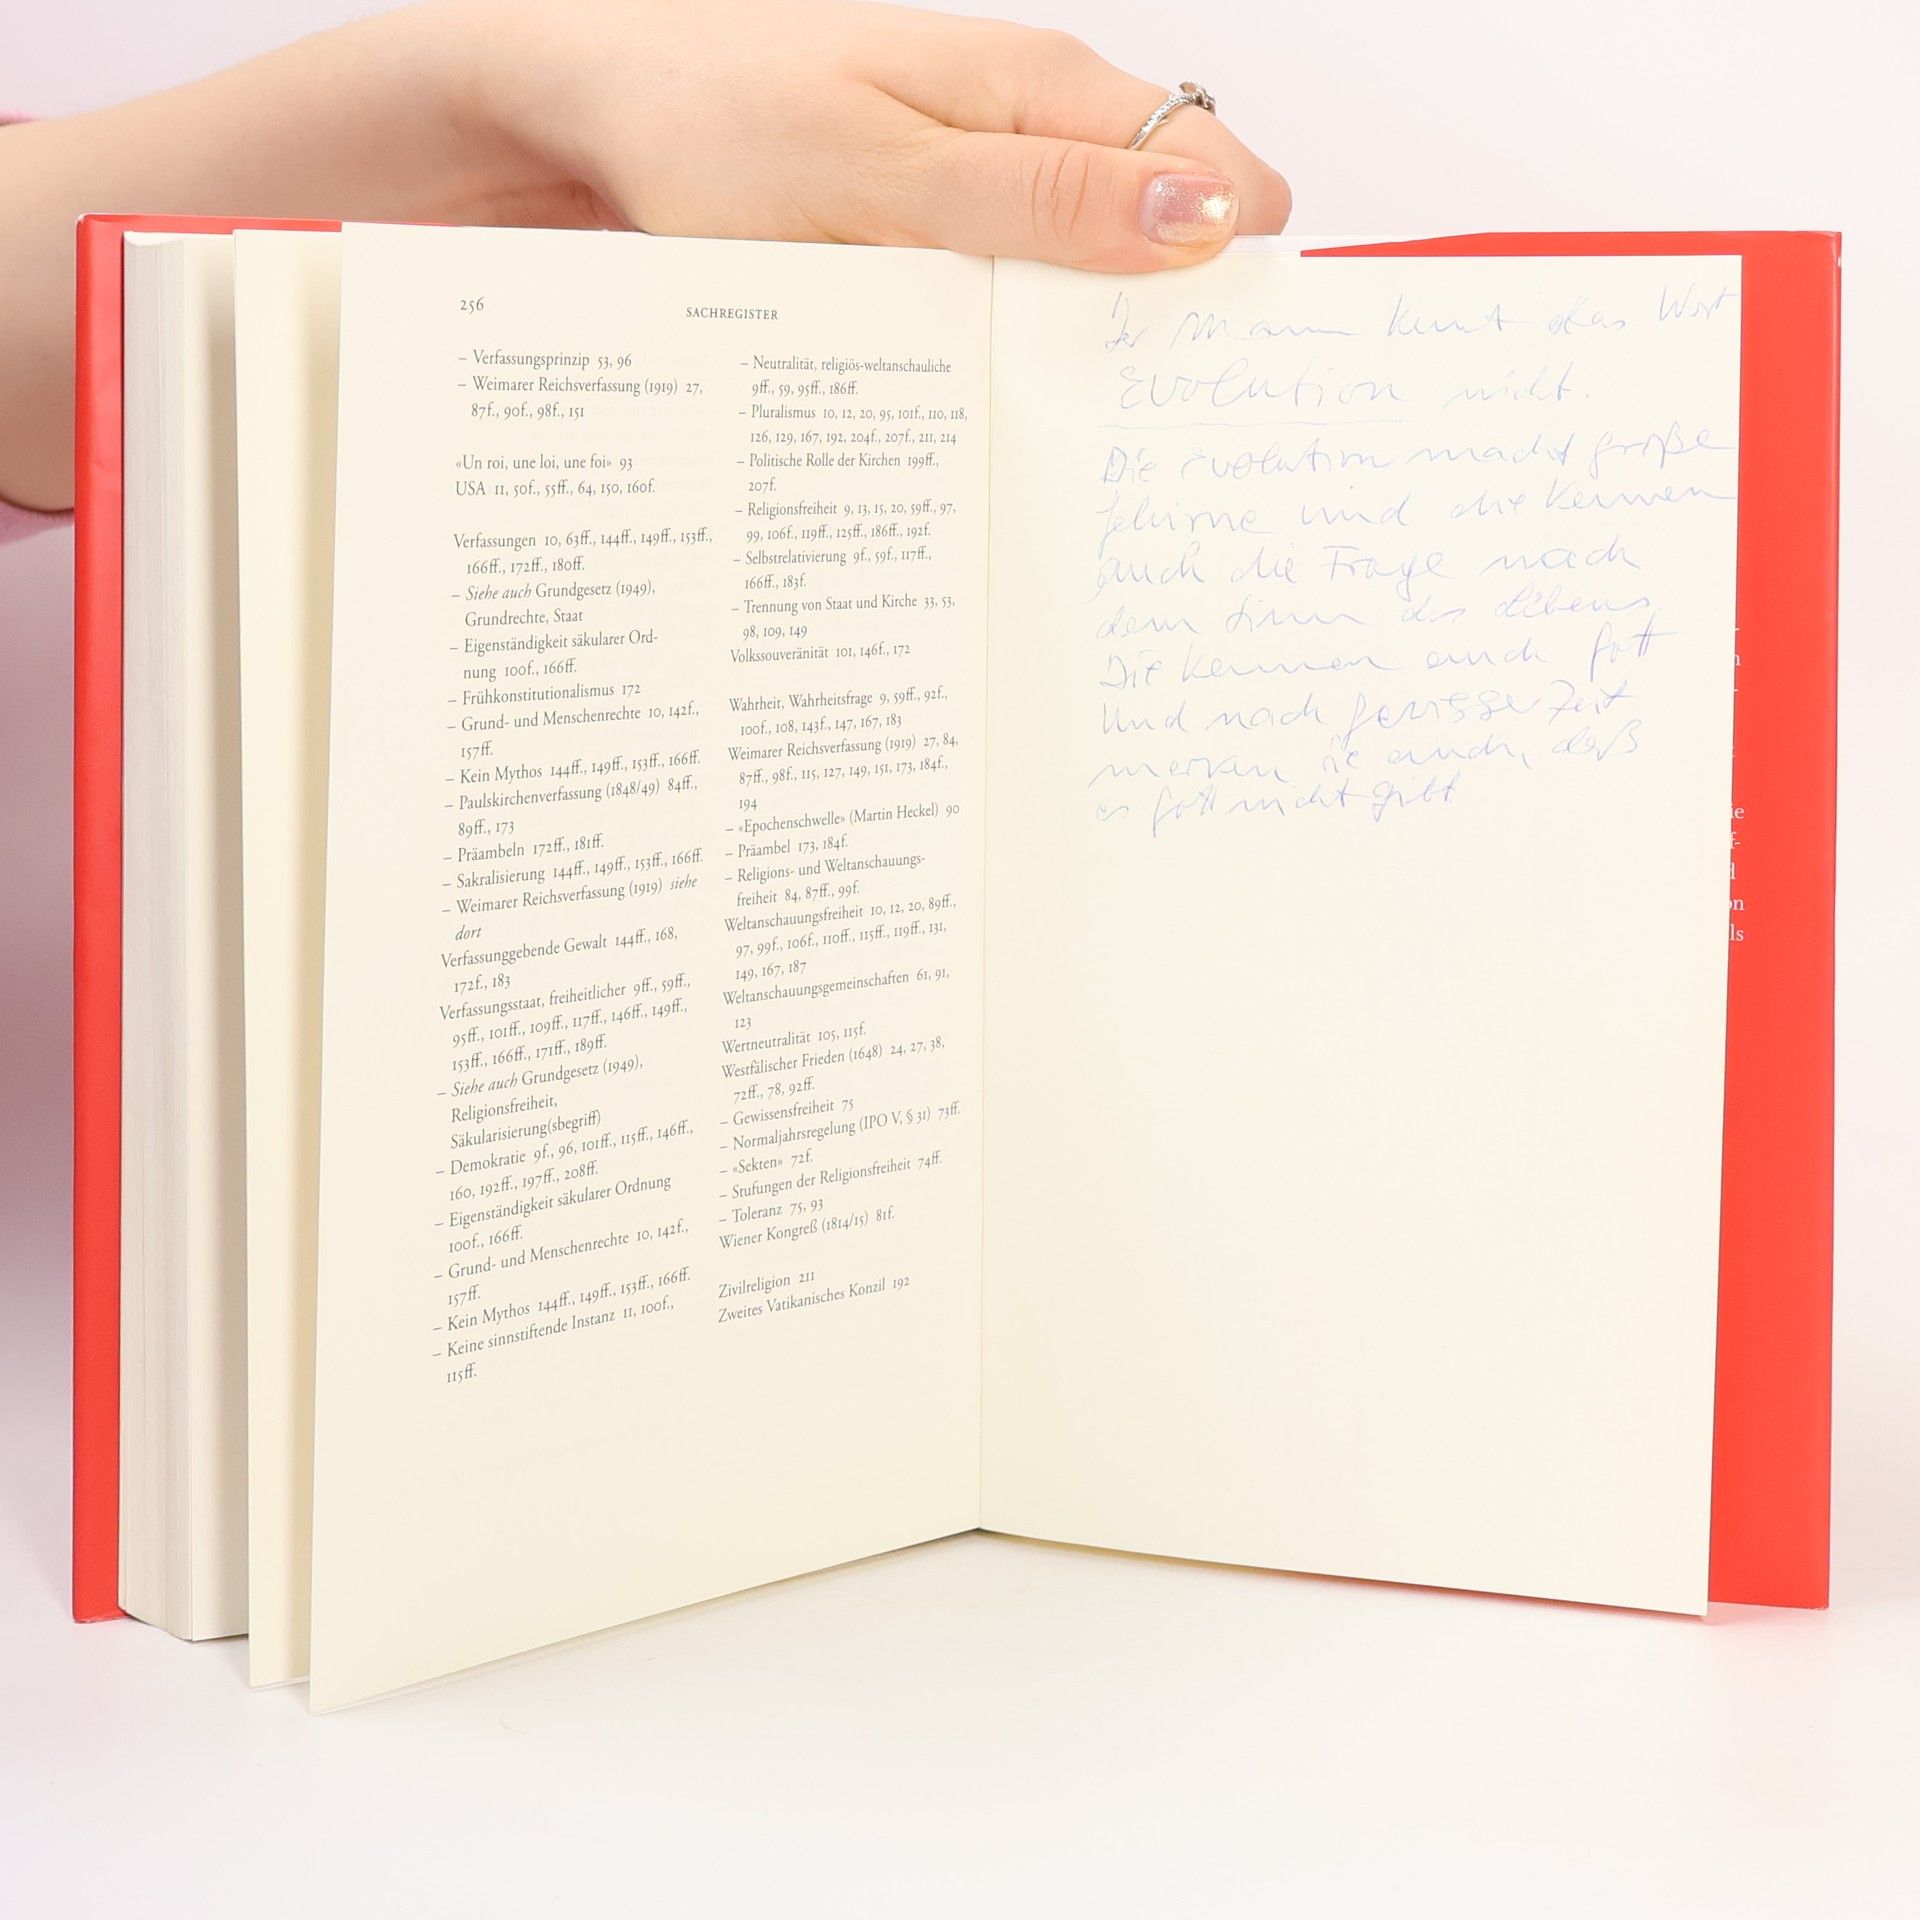 256
SACHREGISTER
– Verfassungsprinzip 53, 96
– Weimarer Reichsverfassung (1919) 27,
87f., 90f., 98f., 151
«Un roi, une loi, une foi» 93
USA 11, 50f., 55ff., 64, 150, 160f.
Verfassungen 10, 63ff., 144ff., 149ff., 153ff.,
166ff., 172ff., 180ff.
– Siehe auch Grundgesetz (1949),
Grundrechte, Staat
– Eigenständigkeit säkularer Ord-
nung 100f., 166ff.
– Frühkonstitutionalismus 172
– Grund- und Menschenrechte 10, 142f.,
157ff.
– Kein Mythos 144ff., 149ff., 153ff., 166ff.
– Paulskirchenverfassung (1848/49) 84ff.,
89ff., 173
– Präambeln 172ff., 181ff.
– Sakralisierung 144ff., 149ff., 153ff., 166ff.
– Weimarer Reichsverfassung (1919) siehe
dort
Verfassunggebende Gewalt 144ff., 168,
172f., 183
Verfassungsstaat, freiheitlicher 9ff., 59ff.,
95ff., 101ff., 109ff., 117ff., 146ff., 149ff.,
153ff., 166ff., 171ff., 189ff.
– Siehe auch Grundgesetz (1949),
Religionsfreiheit,
Säkularisierung(sbegriff)
– Demokratie 9f., 96, 101ff., 115ff., 146ff.,
160, 192ff., 197ff., 208ff.
– Eigenständigkeit säkularer Ordnung
100f., 166ff.
– Grund- und Menschenrechte 10, 142f.,
157ff.
– Kein Mythos 144ff., 149ff., 153ff., 166ff.
– Keine sinnstiftende Instanz 11, 100f.,
115ff.
– Neutralität, religiös-weltanschauliche
9ff., 59, 95ff., 186ff.
– Pluralismus 10, 12, 20, 95, 101f., 110, 118,
126, 129, 167, 192, 204f., 207f., 211, 214
– Politische Rolle der Kirchen 199ff.,
207f.
– Religionsfreiheit 9, 13, 15, 20, 59ff., 97,
99, 106f., 119ff., 125ff., 186ff., 192f.
– Selbstrelativierung 9f., 59f., 117ff.,
166ff., 183f.
– Trennung von Staat und Kirche 33, 53,
98, 109, 149
Volkssouveränität 101, 146f., 172
Wahrheit, Wahrheitsfrage 9, 59ff., 92f.,
100f., 108, 143f., 147, 167, 183
Weimarer Reichsverfassung (1919) 27, 84,
87ff., 98f., 115, 127, 149, 151, 173, 184f.,
194
– «Epochenschwelle» (Martin Heckel) 90
– Präambel 173, 184f.
– Religions- und Weltanschauungs-
freiheit 84, 87ff., 99f.
Weltanschauungsfreiheit 10, 12, 20, 89ff.,
97, 99f., 106f., 110ff., 115ff., 119ff., 131,
149, 167, 187
Weltanschauungsgemeinschaften 61, 91,
123
Wertneutralität 105, 115f.
Westfälischer Frieden (1648) 24, 27, 38,
72ff., 78, 92ff.
– Gewissensfreiheit 75
– Normaljahrsregelung (IPO V, § 31) 73ff.
– «Sekten» 72f.
– Stufungen der Religionsfreiheit 74ff.
– Toleranz 75, 93
Wiener Kongreß (1814/15) 81f.
Zivilreligion 211
Zweites Vatikanisches Konzil 192
Der Mann kennt das Wort
Evolution nicht.
Die Evolution macht große
Gehirne und die kennen
auch die Frage nach
dem Sinn des Lebens.
Die kennen auch Gott
und nach gewisser Zeit
merken sie auch, daß
es Gott nicht gibt